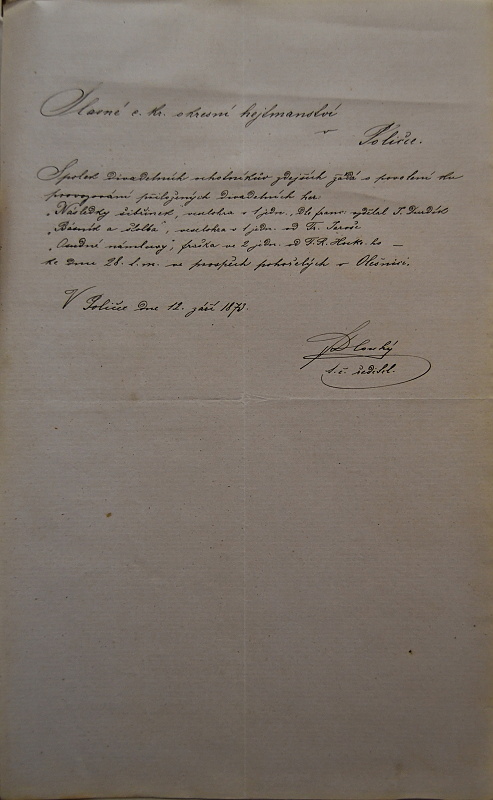 Slavné c. kr. okresní hejtmanství
v
Poličce.
Spolek divadelních ochotníkův zdejších žádá o povolení ku
provozování přiložených divadelních her
„Následky šibřinek", veselohra v 1 jedn. dle franc. vzdělal J.
„Básník a Žalba", veselohra v 1 jedn. od Fr.
„Osudné námluvy", fraška ve 2 jedn. od
ke dne 28. t. m. ve prospěch pohořelých v Olešnici.
V Poličce dne 12. září 1873.
Dlouhý
t. č. ředitel.